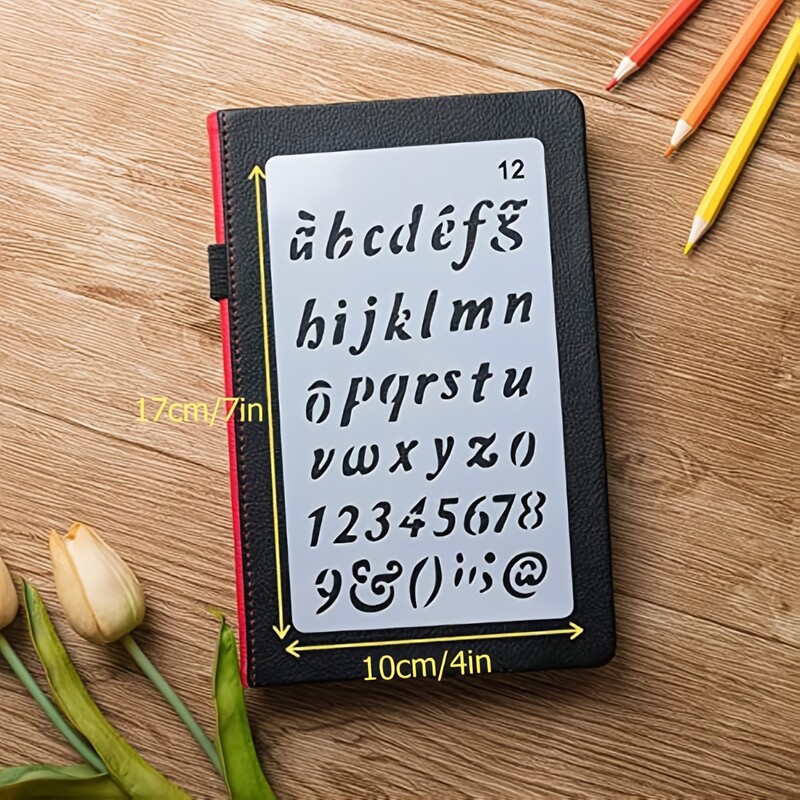 12
àbcdéfg̃
hijklmn
ôpqrstu
vwxyz0
12345678
9&()i';@
17cm/7in
10cm/4in